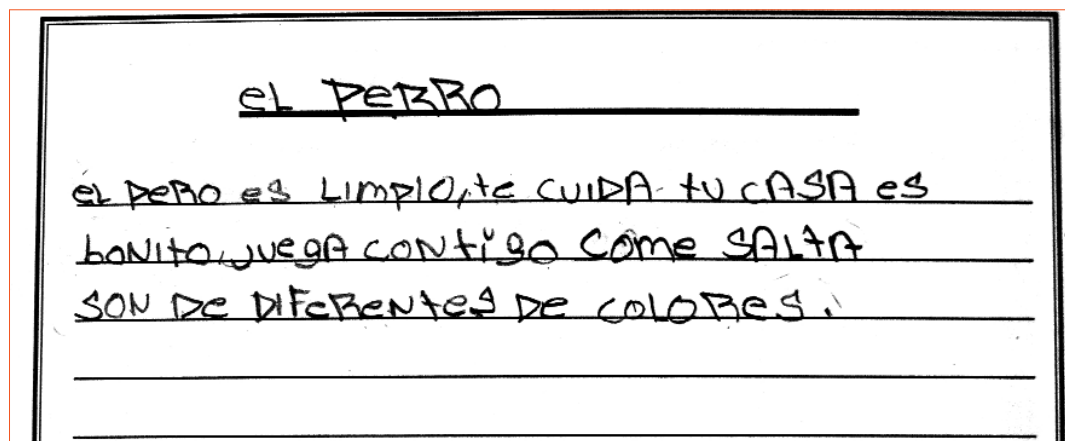 eL PeRRO
eL PeRO es LimPIO, te CUIDA tU CASA es
boNito, JUegA CONtigo Come SALtA
SON De DIFeReNtes De COLORes.